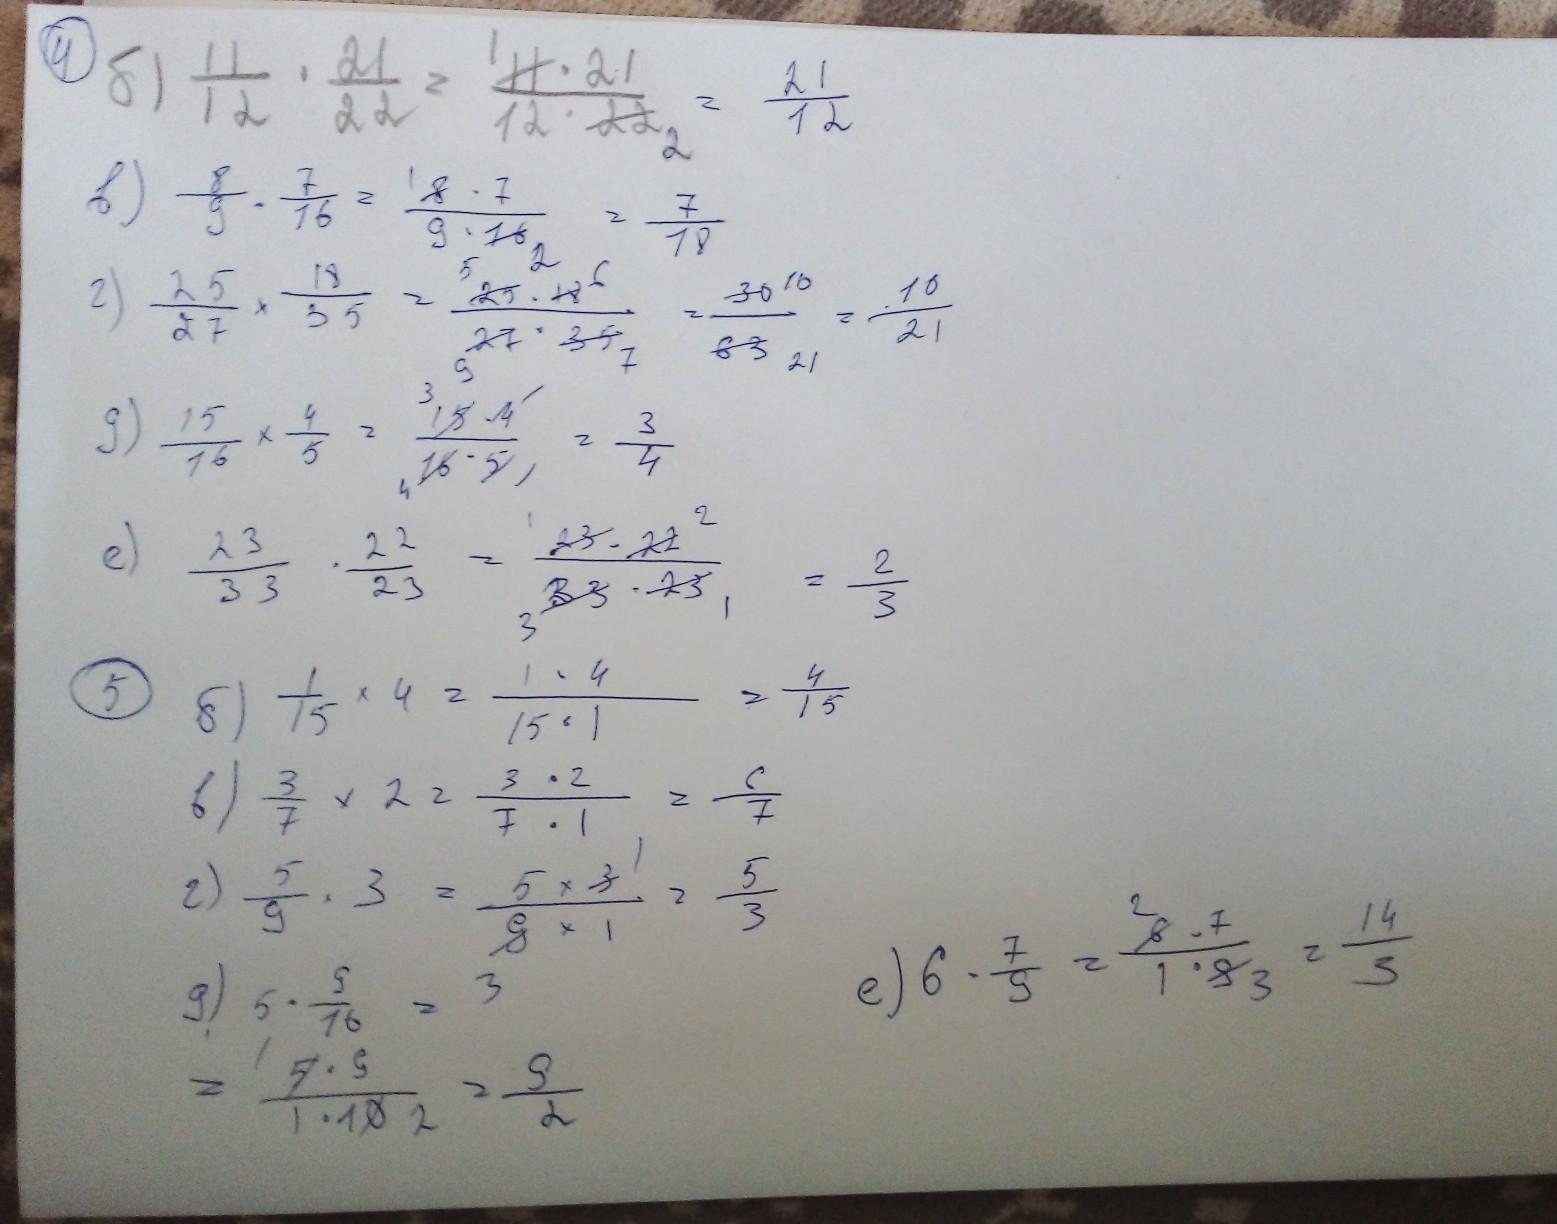 4 б) 11/12 · 21/22 = 1 11·21 / 12·22 2 = 21/12
в) 8/9 · 7/16 = 1 8·7 / 9·16 2 = 7/18
г) 25/27 × 18/35 = 5 25·18 6 / 9 27·35 7 = 30 10 / 63 21 = 10/21
д) 15/16 × 4/5 = 3 15·4 1 / 4 16·5 1 = 3/4
е) 23/33 · 22/23 = 1 23·22 2 / 3 33·23 1 = 2/3
5 б) 1/15 × 4 = 1·4 / 15·1 = 4/15
в) 3/7 × 2 = 3·2 / 7·1 = 6/7
г) 5/9 · 3 = 5×3 1 / 9×1 3 = 5/3
д) 5 · 9/10 =
= 1 5·9 / 1·10 2 = 9/2
е) 6 · 7/9 = 2 6·7 / 1·9 3 = 14/3